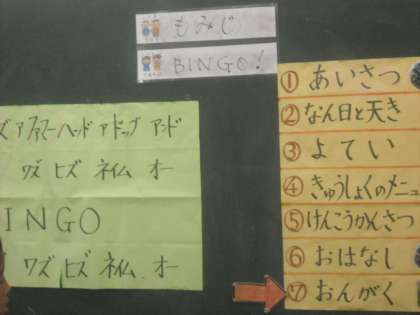 もみじ
BINGO!
ズ ア ファマー ヘッド ア ドッグ アンド
ワズ ヒズ ネイム オー
INGO
ワズ ヒズ ネイム オー
① あいさつ
② なん日と天き
③ よてい
④ きゅうしょくのメニュ
⑤ けんこうかんさつ
⑥ おはなし
⑦ おんがく